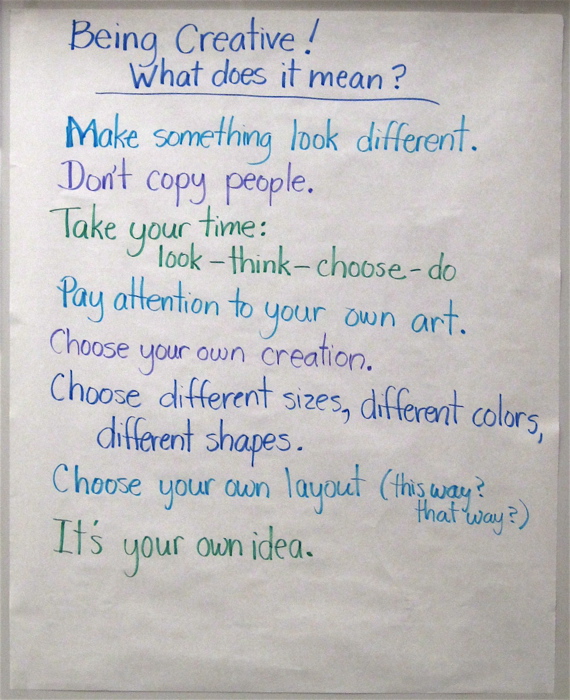 Being Creative!
What does it mean?
Make something look different.
Don't copy people.
Take your time:
look-think-choose-do
Pay attention to your own art.
Choose your own creation.
Choose different sizes, different colors,
different shapes.
Choose your own layout (this way?
that way?)
It's your own idea.